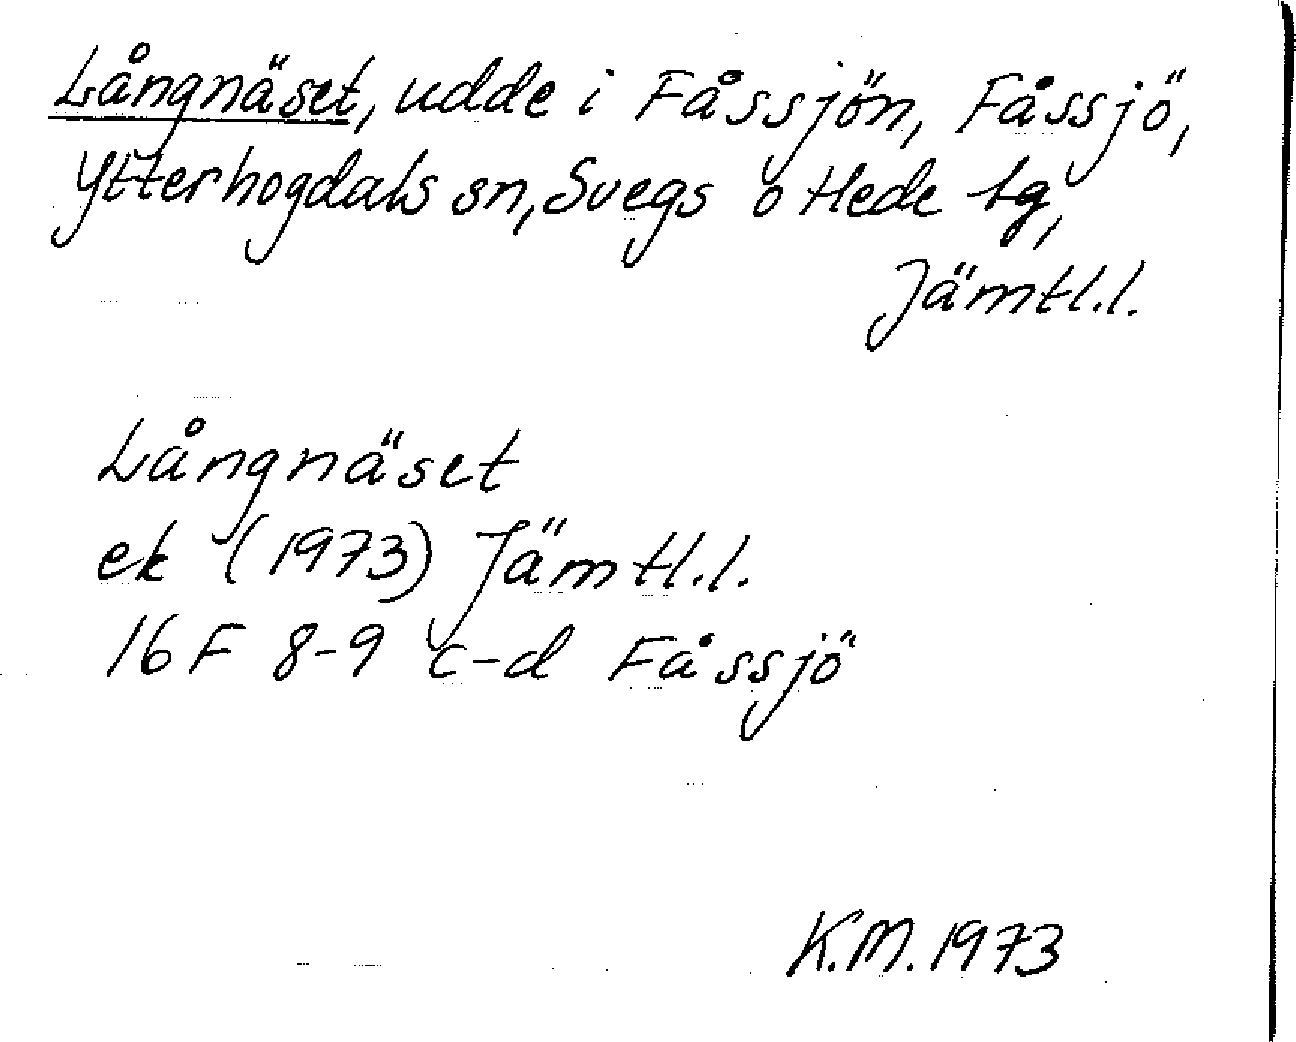 Långnäset, udde i Fåssjön, Fåssjö,
Ytterhogdals sn, Svegs o Hede tg,
Jämtl.l.
Långnäset
ek (1973) Jämtl.l.
16 F 8-9 c-d Fåssjö
K.M. 1973